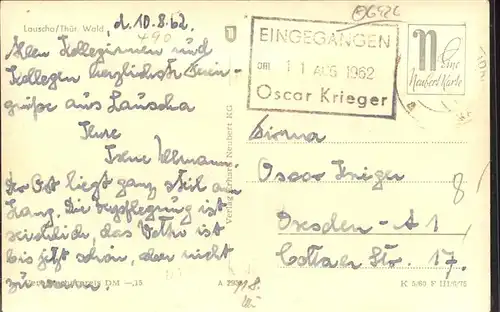 Lauscha/Thür. Wald, d. 10.8.62.
490
Allen Kolleginnen und
Kollegen herzlichste Ferien-
grüße aus Lauscha
Ihre
Irene Ullmann.
Der Ort liegt ganz steil am
Hang. Die Verpflegung ist
reichlich, das Wetter ist
bis jetzt schön, aber nicht
zu warm.
DM —,15
Verlag Erhard Neubert KG
EINGEGANGEN
am 11 AUG 1962
Oscar Krieger
Eine
Neubert Karte
Firma
Oscar Krieger
Dresden - A 1
Cottaer Str. 17.
8
K 5/60 F III/6/75